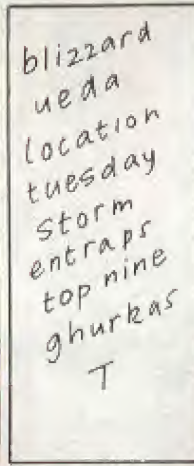 blizzard
ueda
location
tuesday
storm
entraps
top nine
ghurkas
T